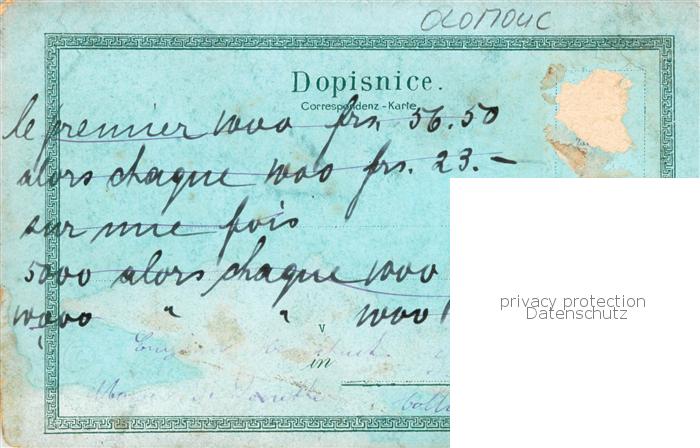 OLOMOUC
Dopisnice.
Correspondenz-Karte.
le premier 1000 frs. 56.50
alors chaque 1000 frs. 23.–
sur une fois
5000 alors chaque 1000
10,000 " " 1000
v
in
privacy protection
Datenschutz